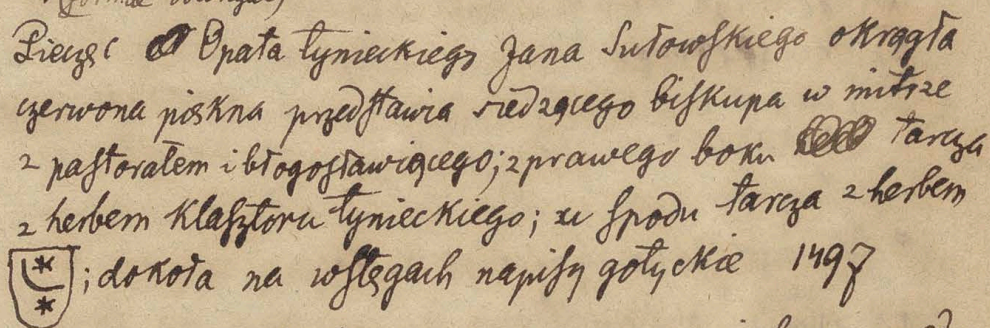 Pieczęć Opata tynieckiego Jana Sułowskiego okrągła
czerwona piękna przedstawia siedzącego biskupa w mitrze
z pastorałem i błogosławiącego; z prawego boku tarcza
z herbem klasztoru tynieckiego; u spodu tarcza z herbem
; dokoła na wstęgach napisy gotyckie 1497